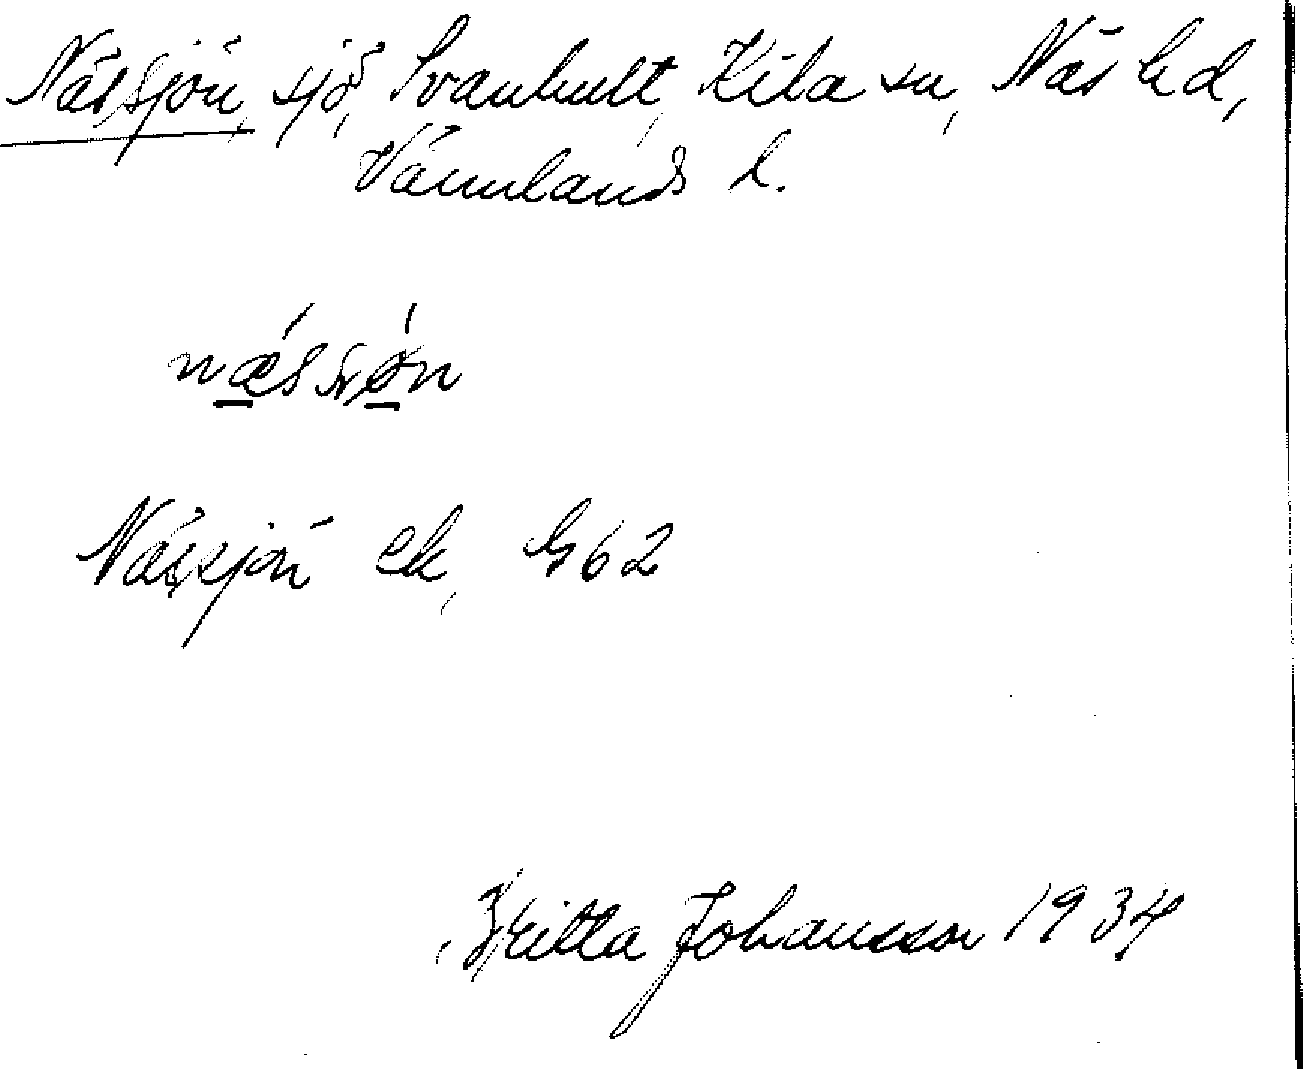 Nässjön, sjö, Svanhult, Kila sn, Näs hd,
Värmlands l.
Nässjön ek, G62
Britta Johansson 1934